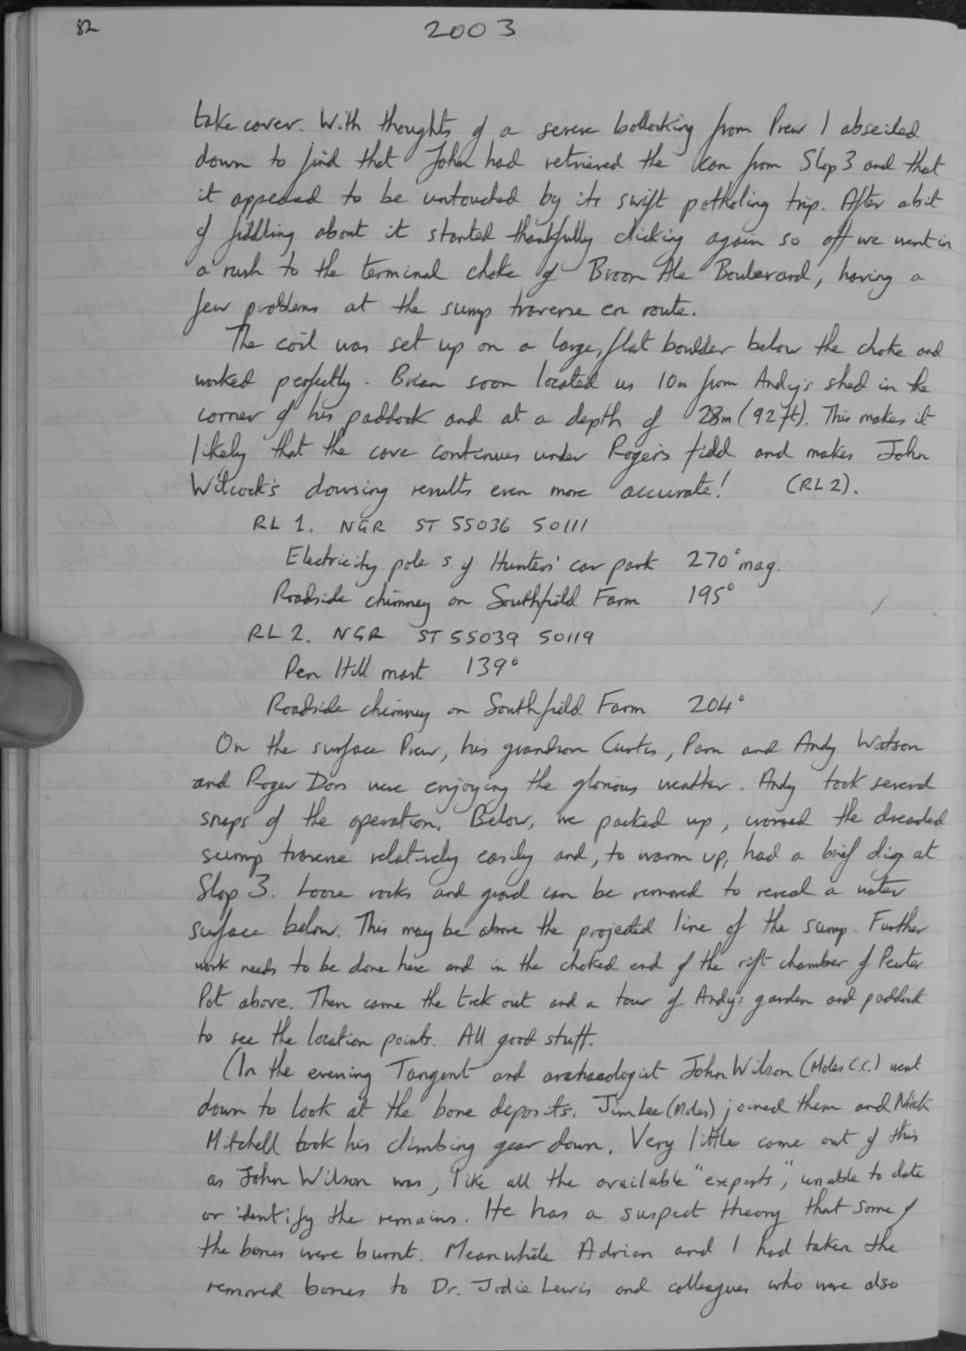 82
2003
take cover. With thoughts of a severe bollocking from Prew I abseiled
down to find that John had retrieved the can from Slop 3 and that
it appeared to be untouched by its swift potholing trip. After abit
of fiddling about it started thankfully clicking again so off we went in
a rush to the terminal choke of Broon Ale Boulevard, having a
few problems at the sump traverse en route.
The coil was set up on a large, flat boulder below the choke and
worked perfectly. Brian soon located us 10m from Andy's shed in the
corner of his paddock and at a depth of 28m (92ft). This makes it
likely that the cave continues under Roger's field and makes John
Wilcock's dowsing results even more accurate! (RL2).
RL 1. NGR ST 55036 50111
Electricity pole S of Hunters' car park 270° mag.
Roadside chimney on Southfield Farm 195°
RL 2. NGR ST 55039 50119
Pen Hill mast 139°
Roadside chimney on Southfield Farm 204°
On the surface Prew, his grandson Curtis, Pam and Andy Watson
and Roger Dors were enjoying the glorious weather. Andy took several
snaps of the operation. Below, we packed up, crossed the dreaded
sump traverse relatively easily and, to warm up, had a brief dig at
Slop 3. Loose rocks and gravel can be removed to reveal a water
surface below. This may be above the projected line of the sump. Further
work needs to be done here and in the choked end of the rift chamber of Pewter
Pot above. Then came the trek out and a tour of Andy's garden and paddock
to see the location points. All good stuff.
(In the evening Tangent and archaeologist John Wilson (Moles C.C.) went
down to look at the bone deposits. Jim Lee (Moles) joined them and Nick
Mitchell took his climbing gear down. Very little came out of this
as John Wilson was, like all the available "experts", unable to date
or identify the remains. He has a suspect theory that some of
the bones were burnt. Meanwhile Adrian and I had taken the
removed bones to Dr. Jodie Lewis and colleagues who were also